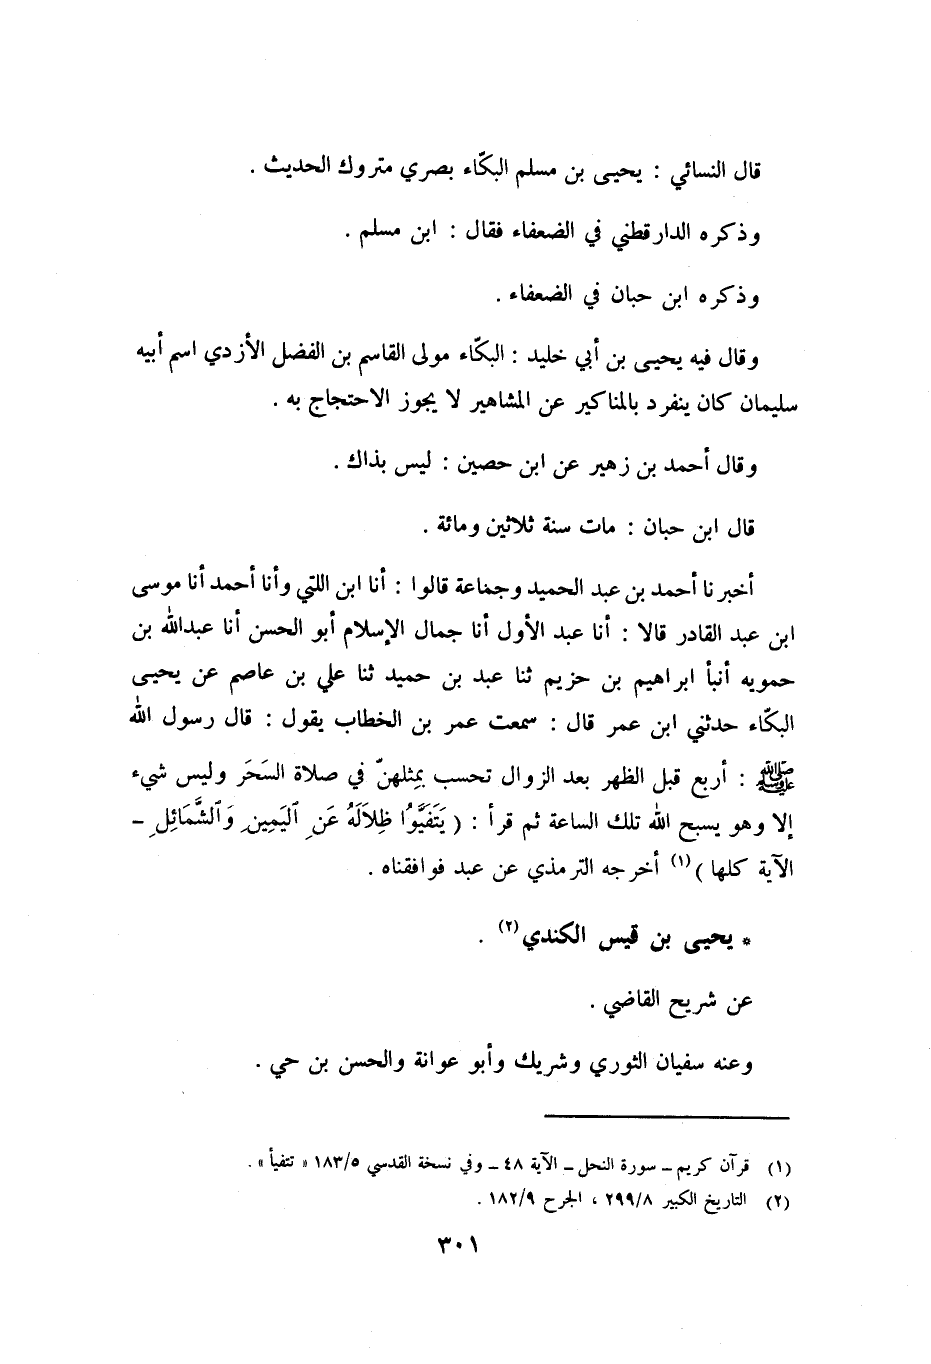 قال النسائي : يحيى بن مسلم البكّاء بصري متروك الحديث .
وذكره الدارقطني في الضعفاء فقال : ابن مسلم .
وذكره ابن حبان في الضعفاء .
وقال فيه يحيى بن أبي خليد : البكّاء مولى القاسم بن الفضل الأزدي اسم أبيه
سليمان كان ينفرد بالمناكير عن المشاهير لا يجوز الاحتجاج به .
وقال أحمد بن زهير عن ابن حصين : ليس بذاك .
قال ابن حبان : مات سنة ثلاثين ومائة .
أخبرنا أحمد بن عبد الحميد وجماعة قالوا : أنا ابن اللتي وأنا أحمد أنا موسى
ابن عبد القادر قالا : أنا عبد الأول أنا جمال الإسلام أبو الحسن أنا عبدالله بن
حمويه أنبأ ابراهيم بن حزيم ثنا عبد بن حميد ثنا علي بن عاصم عن يحيى
البكّاء حدثني ابن عمر قال : سمعت عمر بن الخطاب يقول : قال رسول الله
ﷺ : أربع قبل الظهر بعد الزوال تحسب بمِثلهنّ في صلاة السَحَر وليس شيء
إلا وهو يسبح الله تلك الساعة ثم قرأ : ( يَتَفَيَّوُا ظِلَالَهُ عَنِ ٱليَمِينِ وَٱلشَّمَائِلِ ـ
الآية كلها )(١) أخرجه الترمذي عن عبد فوافقناه .
* يحيى بن قيس الكندي(٢) .
عن شريح القاضي .
وعنه سفيان الثوري وشريك وأبو عوانة والحسن بن حي .
(١) قرآن كريم ـ سورة النحل ـ الآية ٤٨ ـ وفي نسخة القدسي ١٨٣/٥ « تتفيأ » .
(٢) التاريخ الكبير ٢٩٩/٨ ، الجرح ١٨٢/٩ .
٣٠١